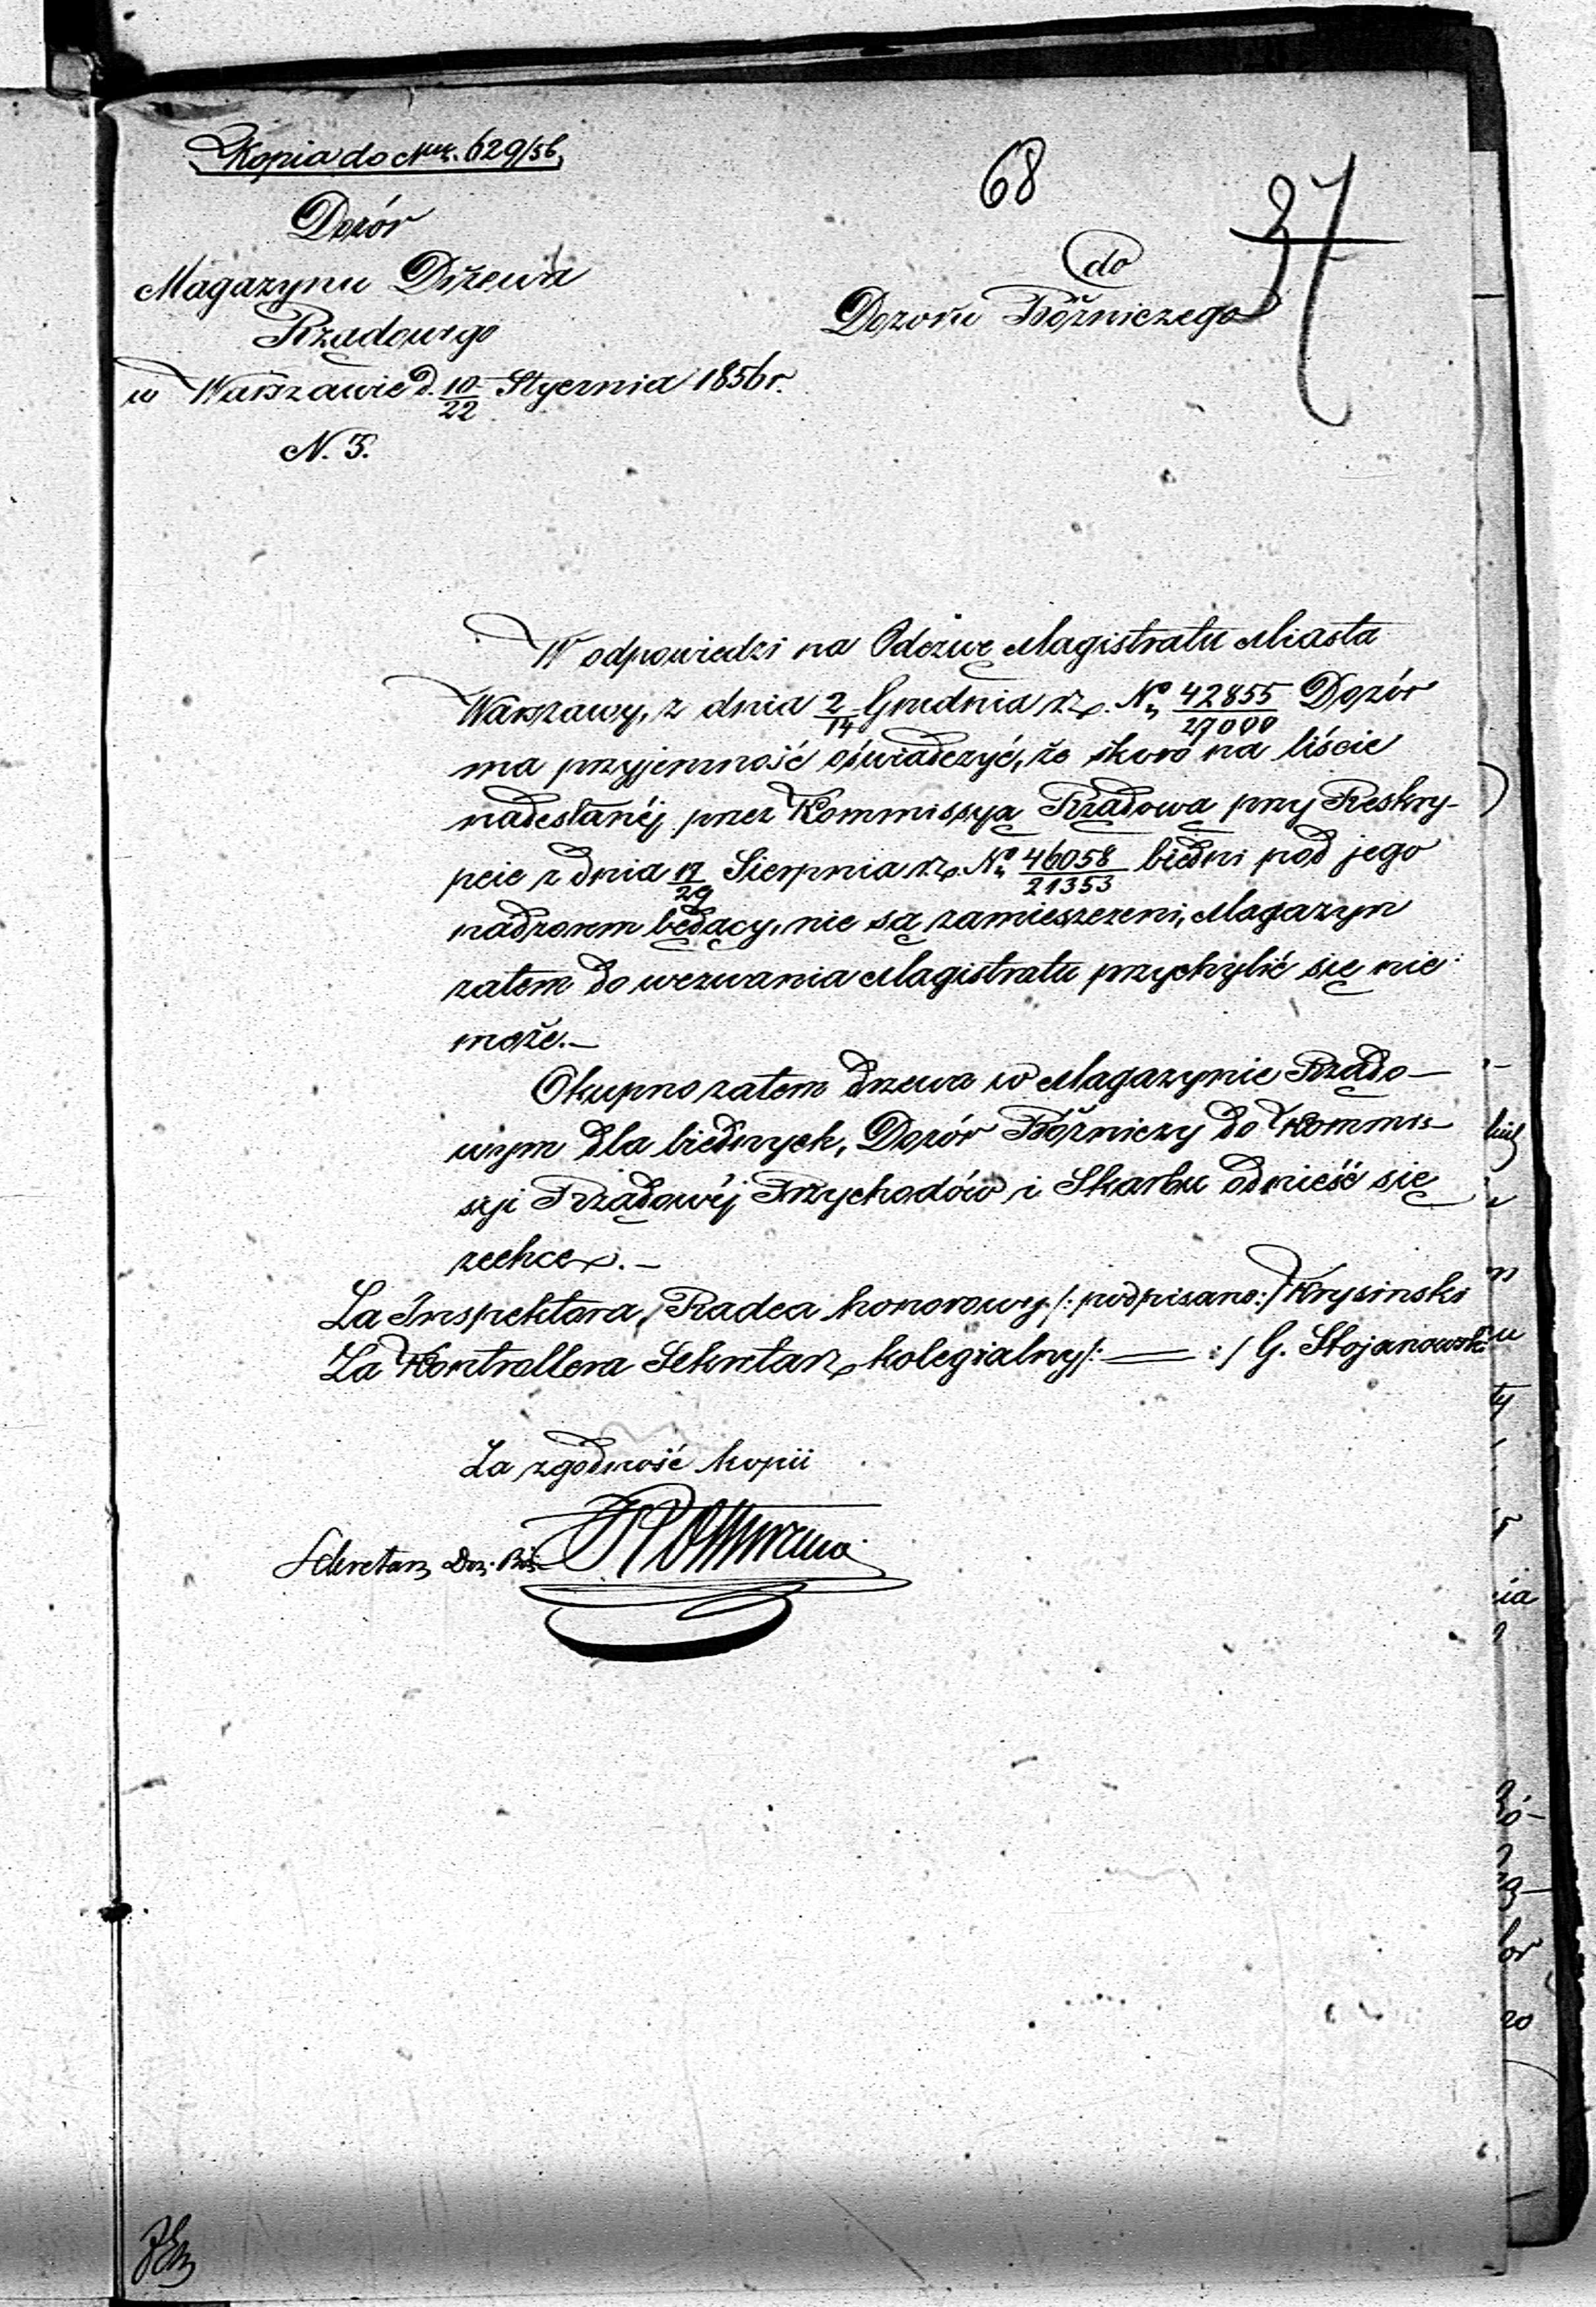 Kopia do Num. 629/56
68
37
Dozór
Magazynu Drzewa
Rządowego
w Warszawie d. 10/22 Stycznia 1856 r.
N. 5.
do
Dozoru Bóżniczego
W odpowiedzi na Odezwę Magistratu Miasta
Warszawy, z dnia 2/14 Grudnia r.z. No 42855/27000 Dozór
ma przyjemność oświadczyć, że skoro na liście
nadesłanéj przez Kommissyą Rządową przy Reskry-
pcie z dnia 17/29 Sierpnia r.z. No 46058/21353 biedni pod jego
nadzorem będący, nie są zamieszczeni, Magazyn
zatem do wezwania Magistratu przychylić się nie
może.—
O kupno zatem drzewa w Magazynie Rządo—
wym dla biednych, Dozór Bóżniczy do Kommis-
syi Rządowéj Przychodów i Skarbu odnieść się
zechce.—
Za Inspektora, Radca honorowy /: podpisano :/ Krysinski
Za Kontrollera Sekretarz kolegialny /: — :/ G. Stojanowski
Za zgodność kopii
Sekretarz Doz. Bóż.